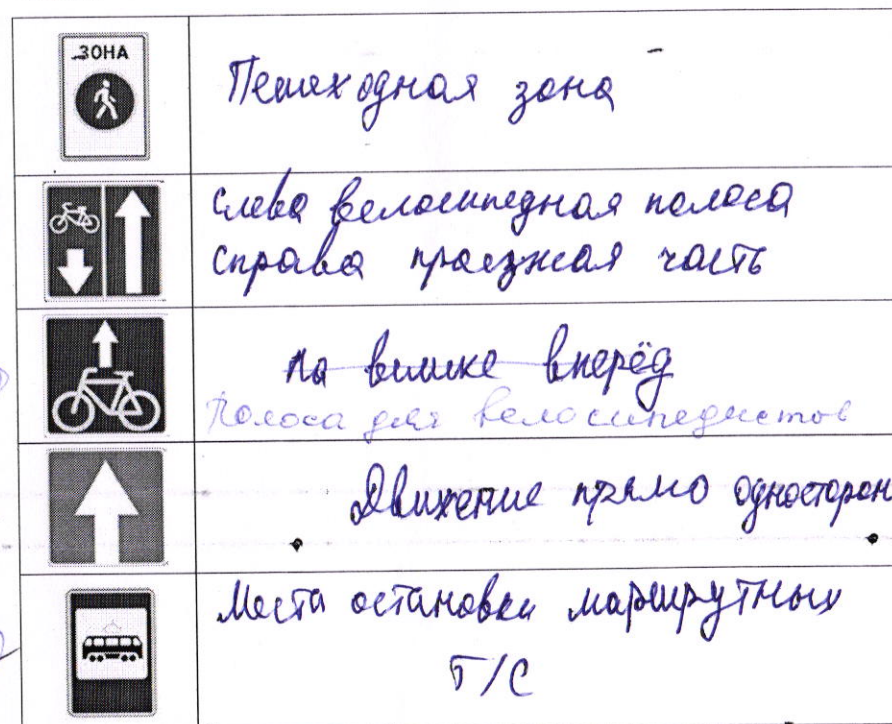 ЗОНА
Пешеходная зона
слева велосипедная полоса
справа проезжая часть
на велике вперёд
Полоса для велосипедистов
Движение прямо односторон
Места остановки маршрутных
Т/С